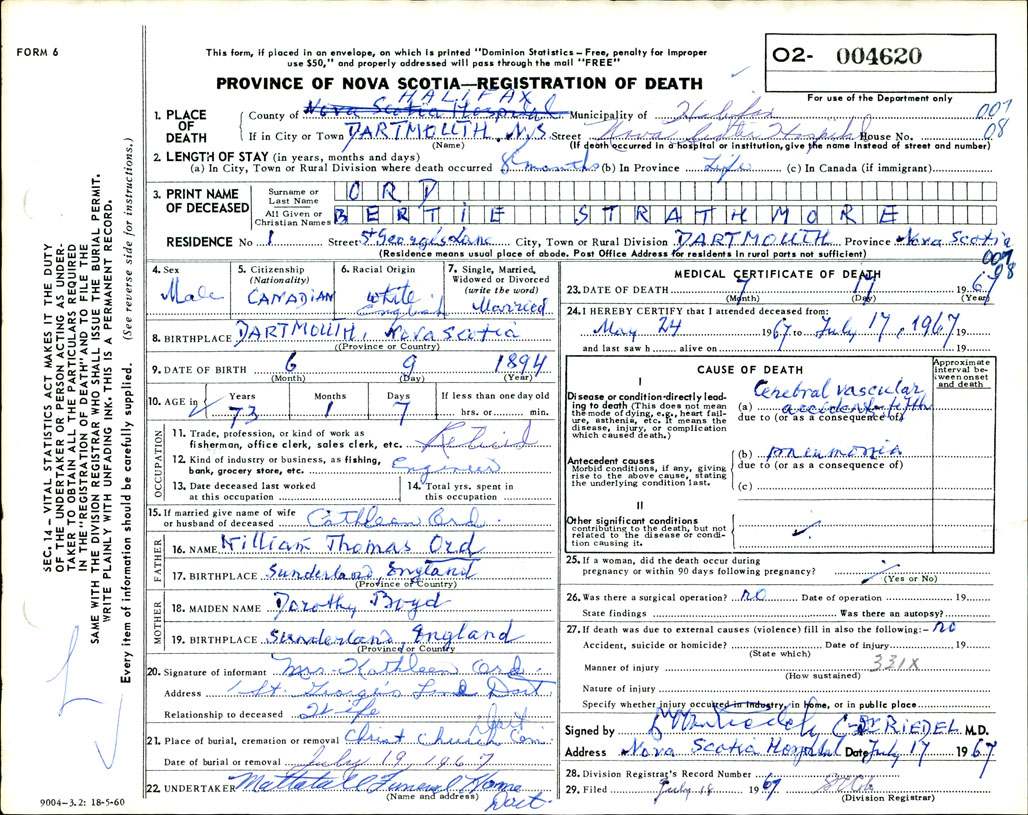 FORM 6
This form, if placed in an envelope, on which is printed "Dominion Statistics – Free, penalty for improper
use $50," and properly addressed will pass through the mail "FREE"
O2- 004620
PROVINCE OF NOVA SCOTIA—REGISTRATION OF DEATH
For use of the Department only
HALIFAX
1. PLACE OF DEATH
County of Nova Scotia Hospital Municipality of Halifax 007
If in City or Town DARTMOUTH. N.S Street Nova Scotia Hospital House No. 08
(Name) (If death occurred in a hospital or institution, give the name instead of street and number)
2. LENGTH OF STAY (in years, months and days)
(a) In City, Town or Rural Division where death occurred 8 months (b) In Province Life (c) In Canada (if immigrant)
3. PRINT NAME OF DECEASED
Surname or Last Name ORD
All Given or Christian Names BERTIE STRATHMORE
RESIDENCE No 1 Street St George's Lane City, Town or Rural Division DARTMOUTH Province Nova Scotia
(Residence means usual place of abode. Post Office Address for residents in rural parts not sufficient) 007
08
4. Sex Male
5. Citizenship (Nationality) CANADIAN
6. Racial Origin White English
7. Single, Married, Widowed or Divorced (write the word) Married
8. BIRTHPLACE DARTMOUTH, Nova Scotia
(Province or Country)
9. DATE OF BIRTH 6 9 1894
(Month) (Day) (Year)
10. AGE in Years Months Days If less than one day old
73 1 7 hrs. or min.
OCCUPATION
11. Trade, profession, or kind of work as
fisherman, office clerk, sales clerk, etc. Retired
12. Kind of industry or business, as fishing,
bank, grocery store, etc. Engineer
13. Date deceased last worked
at this occupation
14. Total yrs. spent in
this occupation
15. If married give name of wife
or husband of deceased Cathleen Ord.
FATHER
16. NAME William Thomas Ord
17. BIRTHPLACE Sunderland, England
(Province or Country)
MOTHER
18. MAIDEN NAME Dorothy Boyd
19. BIRTHPLACE Sunderland, England
(Province or Country)
20. Signature of informant Mrs. Kathleen Ord.
Address 1 St. George's Lane Dart
Relationship to deceased Wife
Dart
21. Place of burial, cremation or removal Christ Church Cem.
Date of burial or removal July 19, 1967
22. UNDERTAKER Mattatall Funeral Home
(Name and address) Dart.
9004–3.2: 18-5-60
MEDICAL CERTIFICATE OF DEATH
23. DATE OF DEATH 7 17 1967
(Month) (Day) (Year)
24. I HEREBY CERTIFY that I attended deceased from:
May 24 1967 to July 17, 1967 19
and last saw h alive on 19
CAUSE OF DEATH
Approximate interval between onset and death
I
Disease or condition directly leading to death (This does not mean the mode of dying, e.g., heart failure, asthenia, etc. It means the disease, injury, or complication which caused death.)
(a) Cerebral vascular
accident
due to (or as a consequence of)
Antecedent causes
Morbid conditions, if any, giving rise to the above cause, stating the underlying condition last.
(b) pneumonia
due to (or as a consequence of)
(c)
II
Other significant conditions
contributing to the death, but not related to the disease or condition causing it.
25. If a woman, did the death occur during
pregnancy or within 90 days following pregnancy?
(Yes or No)
26. Was there a surgical operation? no Date of operation 19
State findings Was there an autopsy?
27. If death was due to external causes (violence) fill in also the following:- no
Accident, suicide or homicide? Date of injury 19
(State which)
Manner of injury 331X
(How sustained)
Nature of injury
Specify whether injury occured in industry, in home, or in public place
Signed by DR RIEDEL M.D.
Address Nova Scotia Hospital Date July 17 1967
28. Division Registrar's Record Number
29. Filed July 18 1967
(Division Registrar)
SEC. 14 – VITAL STATISTICS ACT MAKES IT THE DUTY
OF THE UNDERTAKER OR PERSON ACTING AS UNDER-
TAKER TO OBTAIN ALL THE PARTICULARS REQUIRED
IN THE "REGISTRATION OF DEATH" AND TO FILE THE
SAME WITH THE DIVISION REGISTRAR WHO SHALL ISSUE THE BURIAL PERMIT.
WRITE PLAINLY WITH UNFADING INK. THIS IS A PERMANENT RECORD.
Every item of information should be carefully supplied. (See reverse side for instructions.)